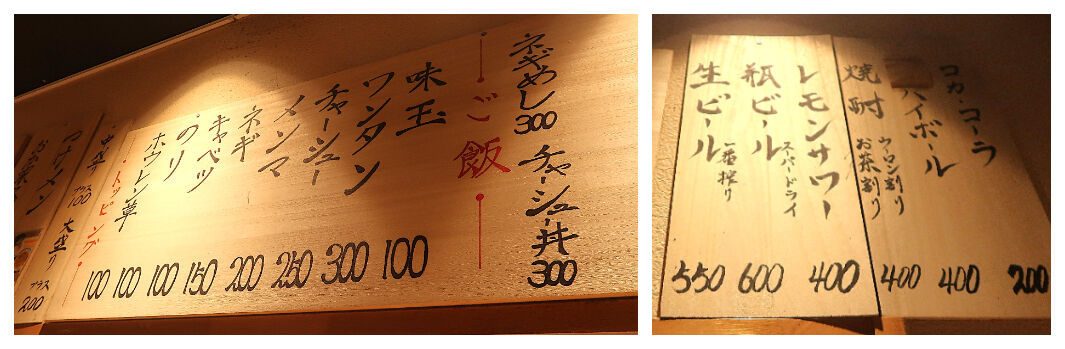 ネギめし 300 チャーシュー丼 300
ご飯
味玉 100
ワンタン 300
チャーシュー 250
メンマ 200
ネギ 150
キャベツ 100
のり 100
ホウレン草 100
トッピング
・中盛り プラス100 大盛り プラス200
つけメン
コカ・コーラ 200
ハイボール 400
焼酎 ウーロン割り お茶割り 400
レモンサワー 400
瓶ビール スーパードライ 600
生ビール 一番搾り 550